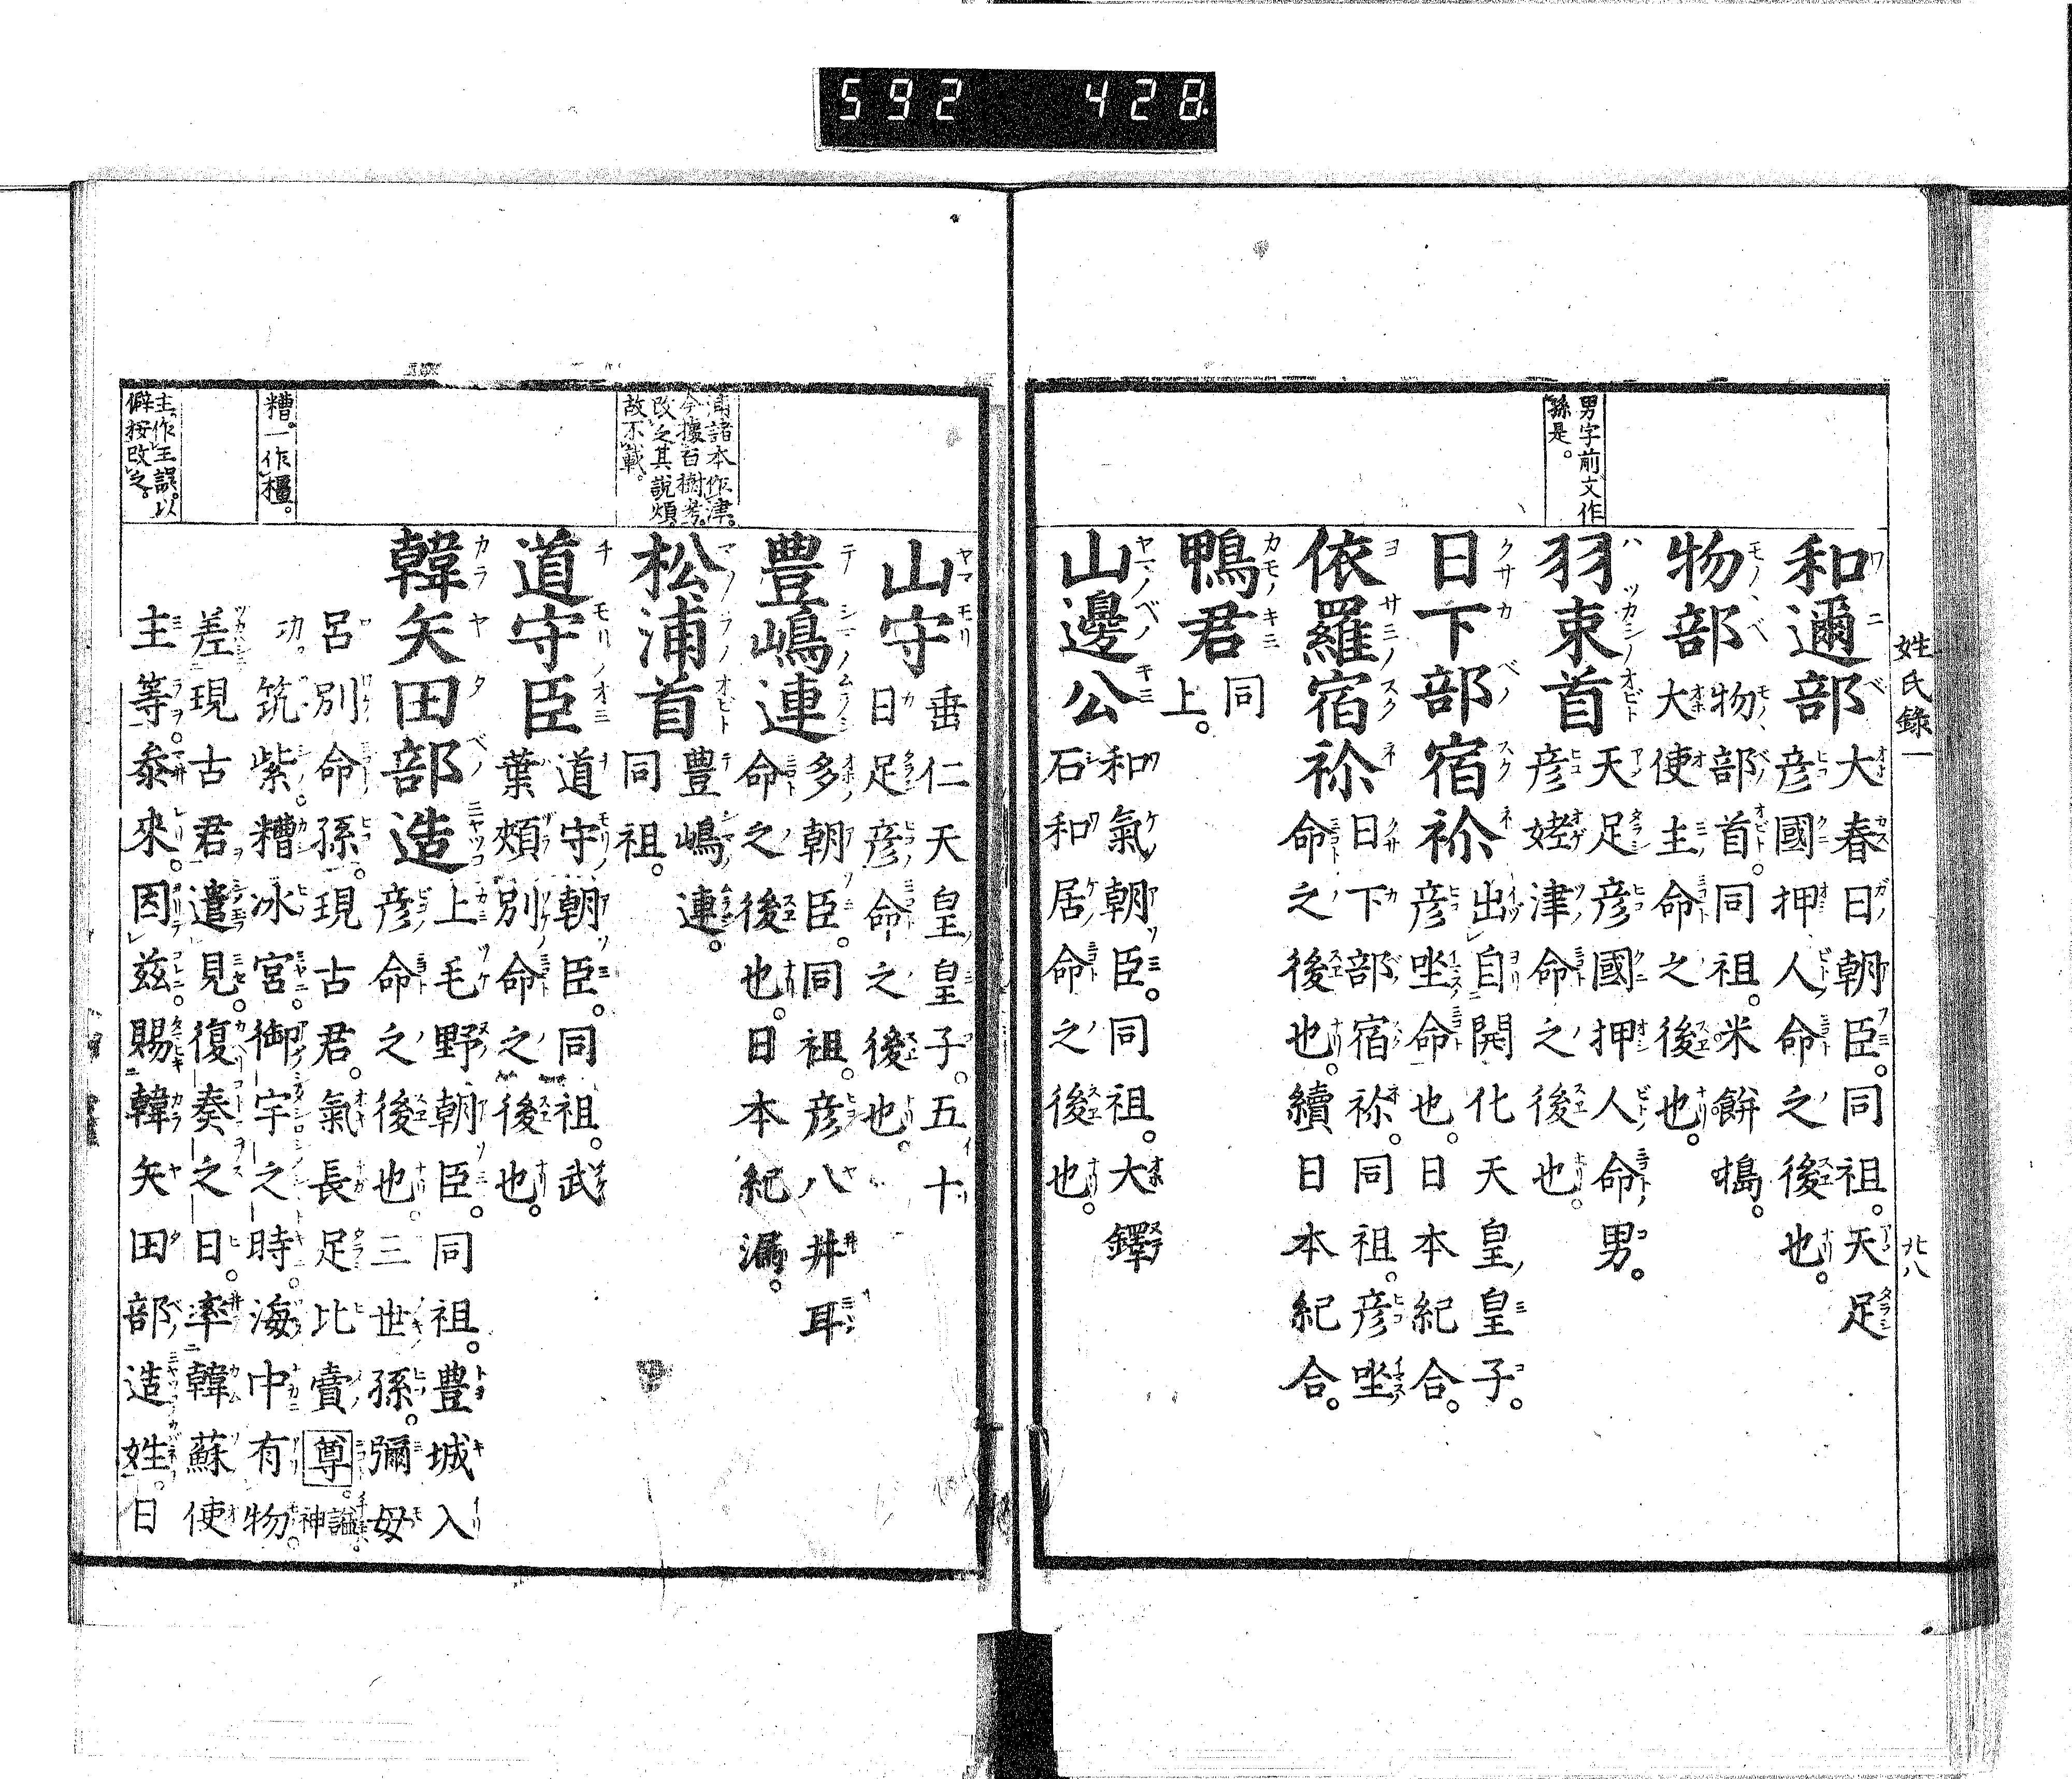 592 428
姓氏錄一
廿八
男字前文作
孫是。
和邇部 大春日朝臣。同祖。天足
彦國押人命之後也。
物部 物部首。同祖。米餅搗
大使主命之後也。
羽束首 天足彦國押人命男。
彦姥津命之後也。
日下部宿祢 出自開化天皇皇子。
彦坐命也。日本紀合。
依羅宿祢 日下部宿祢。同祖。彦坐
命之後也。續日本紀合。
鴨君 同
上。
山邊公 和氣朝臣。同祖。大鐸
石和居命之後也。
浦諸本作津。
今據百樹考。
改之其說煩。
故不載。
糟。一作橿。
主。作王誤。以
僻按改之。
山守 垂仁天皇皇子。五十
日足彦命之後也。
豊嶋連 多朝臣。同祖。彦八井耳
命之後也。日本紀漏。
松浦首 豊嶋連。
同祖。
道守臣 道守朝臣。同祖。武
葉頰別命之後也。
韓矢田部造 上毛野朝臣。同祖。豊城入
彦命之後也。三世孫。彌母
呂別命孫。現古君。氣長足比賣尊。謚神
功。筑紫。糟冰宮。御宇之時。海中有物。
差現古君遣見。復奏之日。率韓蘇使
主等。參來。因茲賜韓矢田部造姓。日